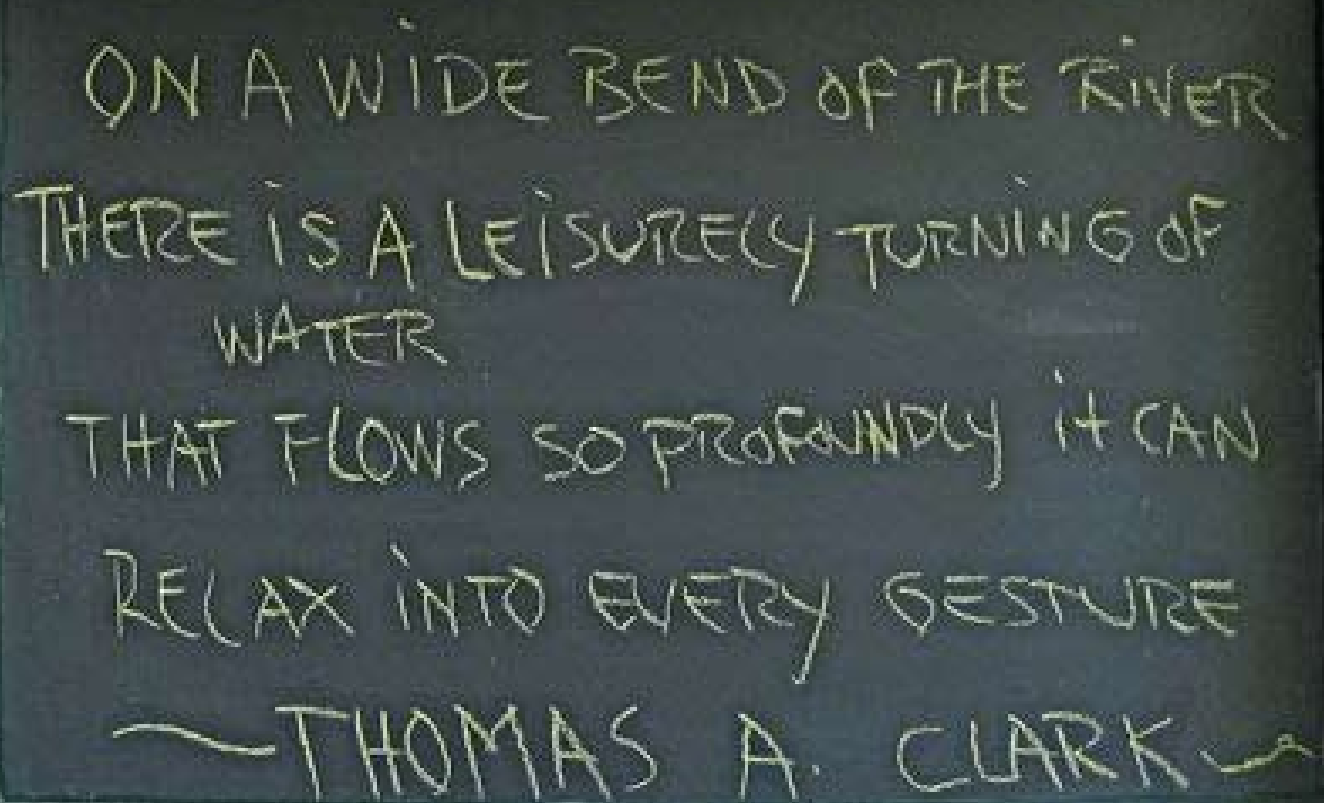 ON A WiDE BEND OF THE RiVER
THERE iS A LEiSURELY TURNiNG OF
WATER
THAT FLOWS SO PROFOUNDLY it CAN
RELAX iNTO EVERY GESTURE
~THOMAS A. CLARK~